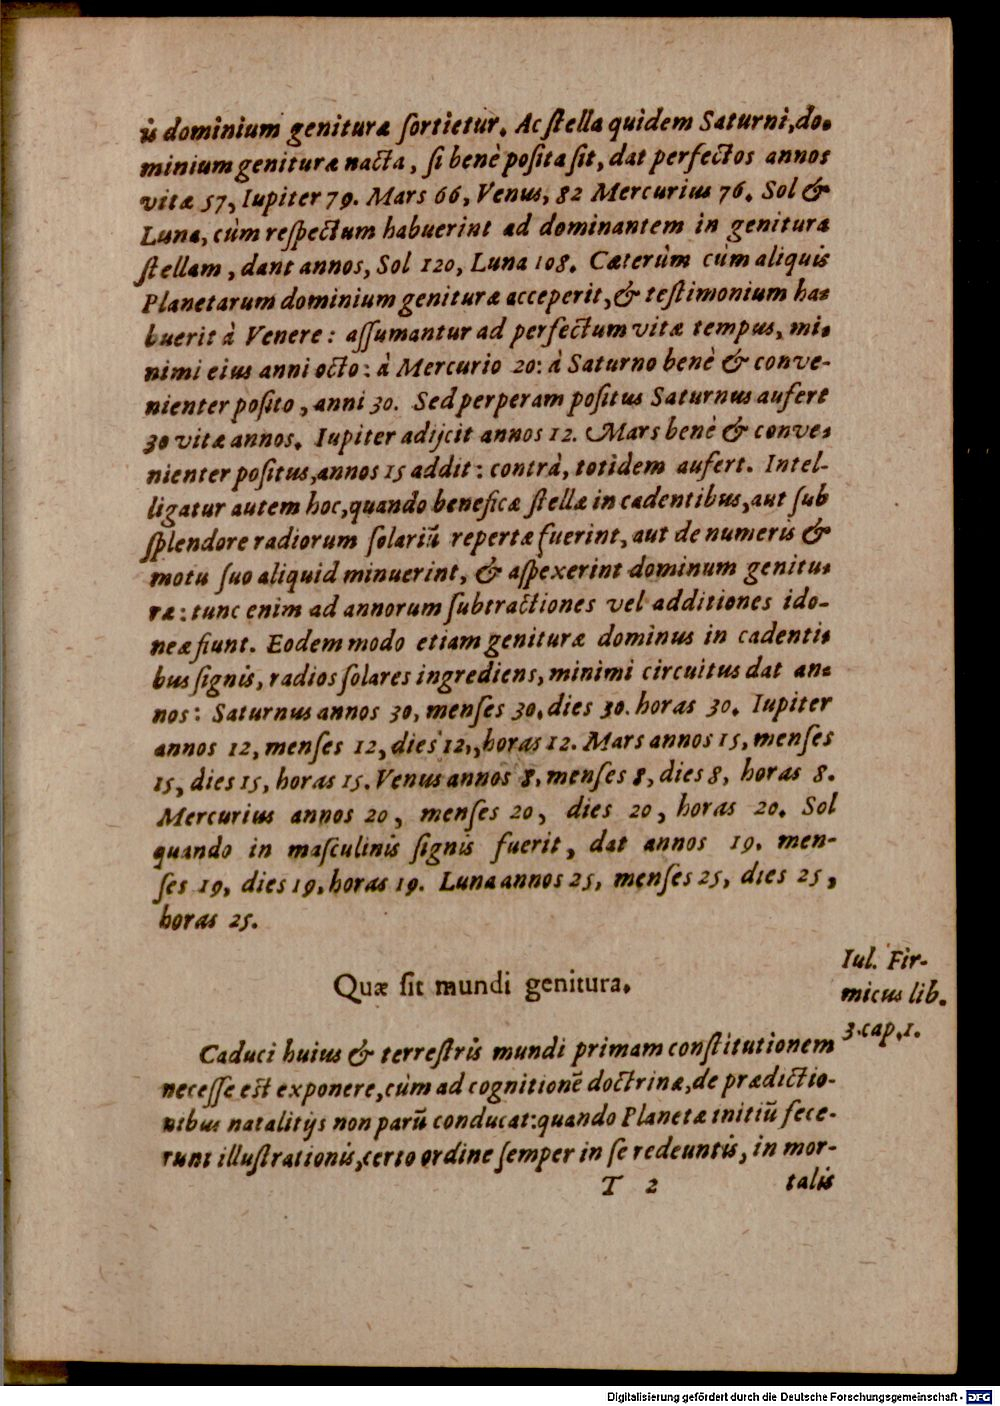 is dominium genituræ ſortietur. Ac ſtella quidem Saturni, do-
minium genituræ nacta, ſi benè poſita ſit, dat perfectos annos
vitæ 57, Iupiter 79. Mars 66, Venus, 82 Mercurius 76. Sol &
Luna, cùm reſpectum habuerint ad dominantem in genitura
ſtellam, dant annos, Sol 120, Luna 108. Cæterùm cùm aliquis
Planetarum dominium genituræ acceperit, & teſtimonium ha-
buerit à Venere: aſſumantur ad perfectum vitæ tempus, mi-
nimi eius anni octo: à Mercurio 20: à Saturno benè & conve-
nienter poſito, anni 30. Sed perperam poſitus Saturnus aufert
30 vitæ annos. Iupiter adijcit annos 12. Mars benè & conve-
nienter poſitus, annos 15 addit: contrà, totidem aufert. Intel-
ligatur autem hoc, quando beneficæ ſtellæ in cadentibus, aut ſub
ſplendore radiorum ſolariū repertæ fuerint, aut de numeris &
motu ſuo aliquid minuerint, & aſpexerint dominum genitu-
ræ: tunc enim ad annorum ſubtractiones vel additiones ido-
neæ fiunt. Eodem modo etiam genituræ dominus in cadenti-
bus ſignis, radios ſolares ingrediens, minimi circuitus dat an-
nos: Saturnus annos 30, menſes 30, dies 30. horas 30. Iupiter
annos 12, menſes 12, dies 12, horas 12. Mars annos 15, menſes
15, dies 15, horas 15. Venus annos 8, menſes 8, dies 8, horas 8.
Mercurius annos 20, menſes 20, dies 20, horas 20. Sol
quando in maſculinis ſignis fuerit, dat annos 19. men-
ſes 19, dies 19, horas 19. Luna annos 25, menſes 25, dies 25,
horas 25.
Quæ ſit mundi genitura.
Iul. Fir-
micus lib.
3. cap. 1.
Caduci huius & terreſtris mundi primam conſtitutionem
neceſſe est exponere, cùm ad cognitionē doctrinæ, de prædictio-
nibus natalitijs non parū conducat: quando Planetæ initiū fece-
runt illuſtrationis, certo ordine ſemper in ſe redeuntis, in mor-
T 2 talis
Digitalisierung gefördert durch die Deutsche Forschungsgemeinschaft - DFG